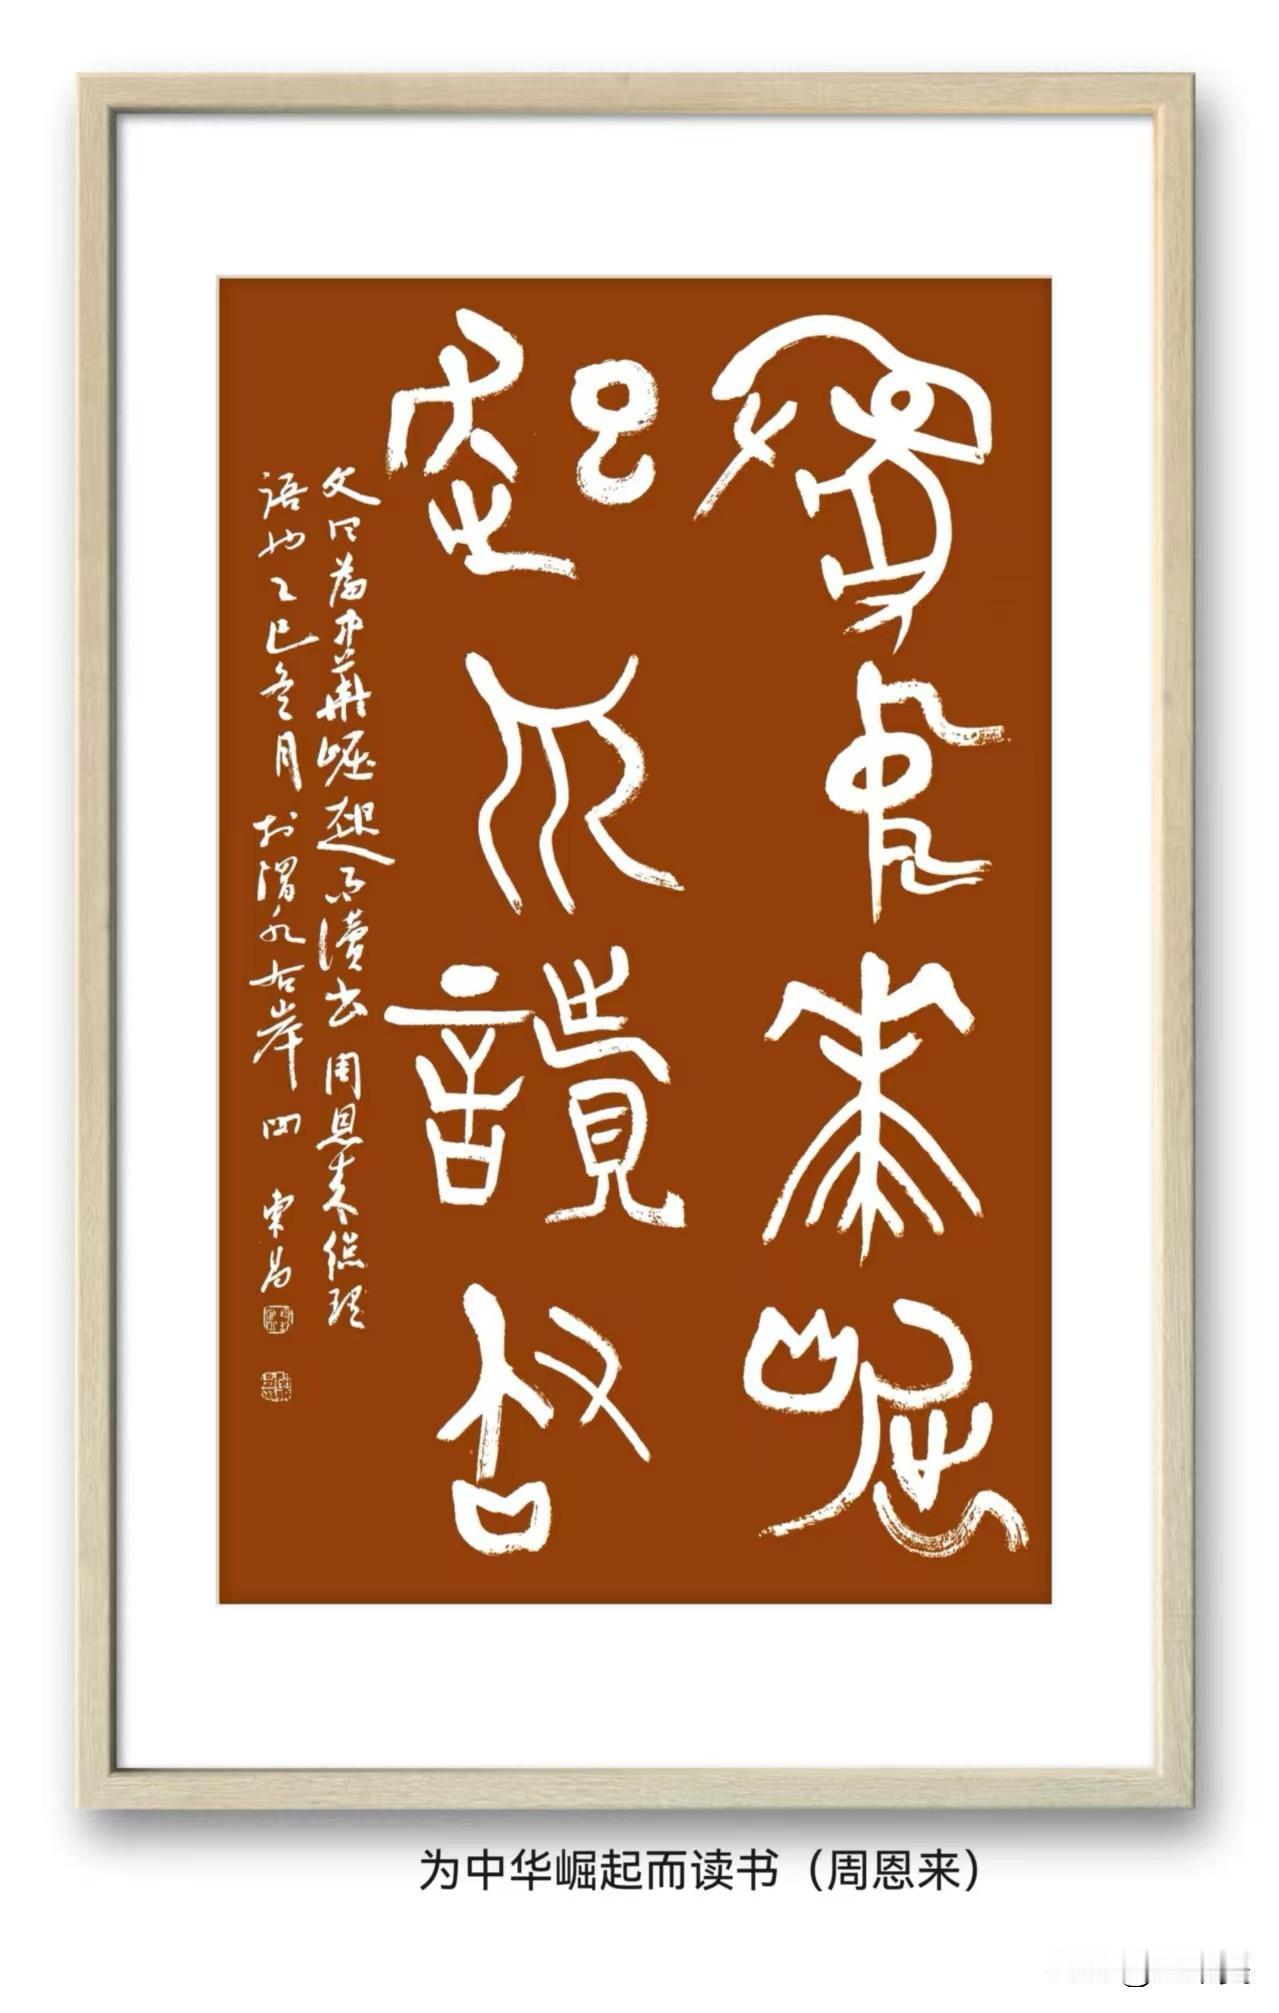 為中華崛
起而讀書
文曰為中華崛起而讀書周恩来總理
語也乙巳冬月於渭水右岸四東昌
为中华崛起而读书（周恩来）